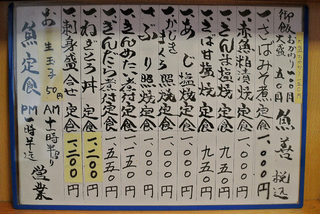 御飯おかわり 一〇〇円
大盛 五〇円
魚善 税込
一、さばみそ煮定食 一、〇〇〇円
一、赤魚粕漬焼定食 一、〇〇〇円
一、さんま塩焼定食 九五〇円
一、さば甘塩焼定食 九五〇円
一、あじ塩焼定食 一、〇〇〇円
一、かじきまぐろ照焼定食 一、〇〇〇円
一、ぶり照焼定食 一、〇〇〇円
一、きんめだい煮付定食 一、一五〇円
一、ぎんだら煮付定食 一、一五〇円
一、ねぎとろ丼定食 一、二〇〇円
一、刺身盛合せ定食 一、二〇〇円
お生玉子 50円
AM十一時半より
魚定食 PM一時半迄 営業